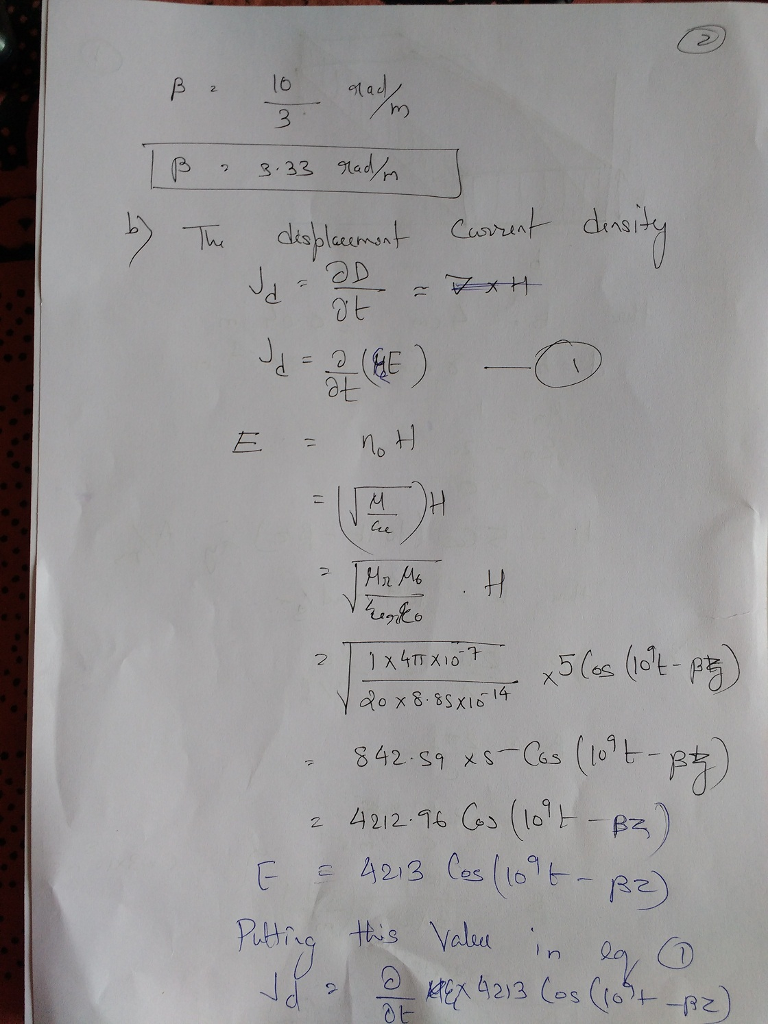 ②
β = 10/3 rad/m
β = 3.33 rad/m
b) The displacement current density
J_d = ∂D/∂t =
J_d = ∂/∂t ( E ) — ①
E = η₀ H
= (√(μ/ε)) H
= √(μr μ₀ / εr ε₀) . H
= √(1 x 4π x 10⁻⁷ / 20 x 8.85 x 10⁻¹⁴) x 5 Cos (10⁹t - βz)
= 842.59 x 5 Cos (10⁹t - βz)
= 4212.96 Cos (10⁹t - βz)
E = 4213 Cos (10⁹t - βz)
Putting this Value in eq ①
J_d = ∂/∂t x 4213 Cos (10⁹t - βz)